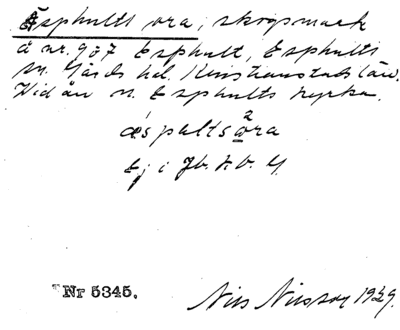 Esphults ora, skogsmark
å nr. 9 o 7 Esphult, Esphults
sn. Gärds hd. Kristianstads län.
Vid ån n. Esphults kyrka.
æspultsωra
2
Ej i Jb. h. b. G
Nr 5345.
Nils Nilsson 1929.